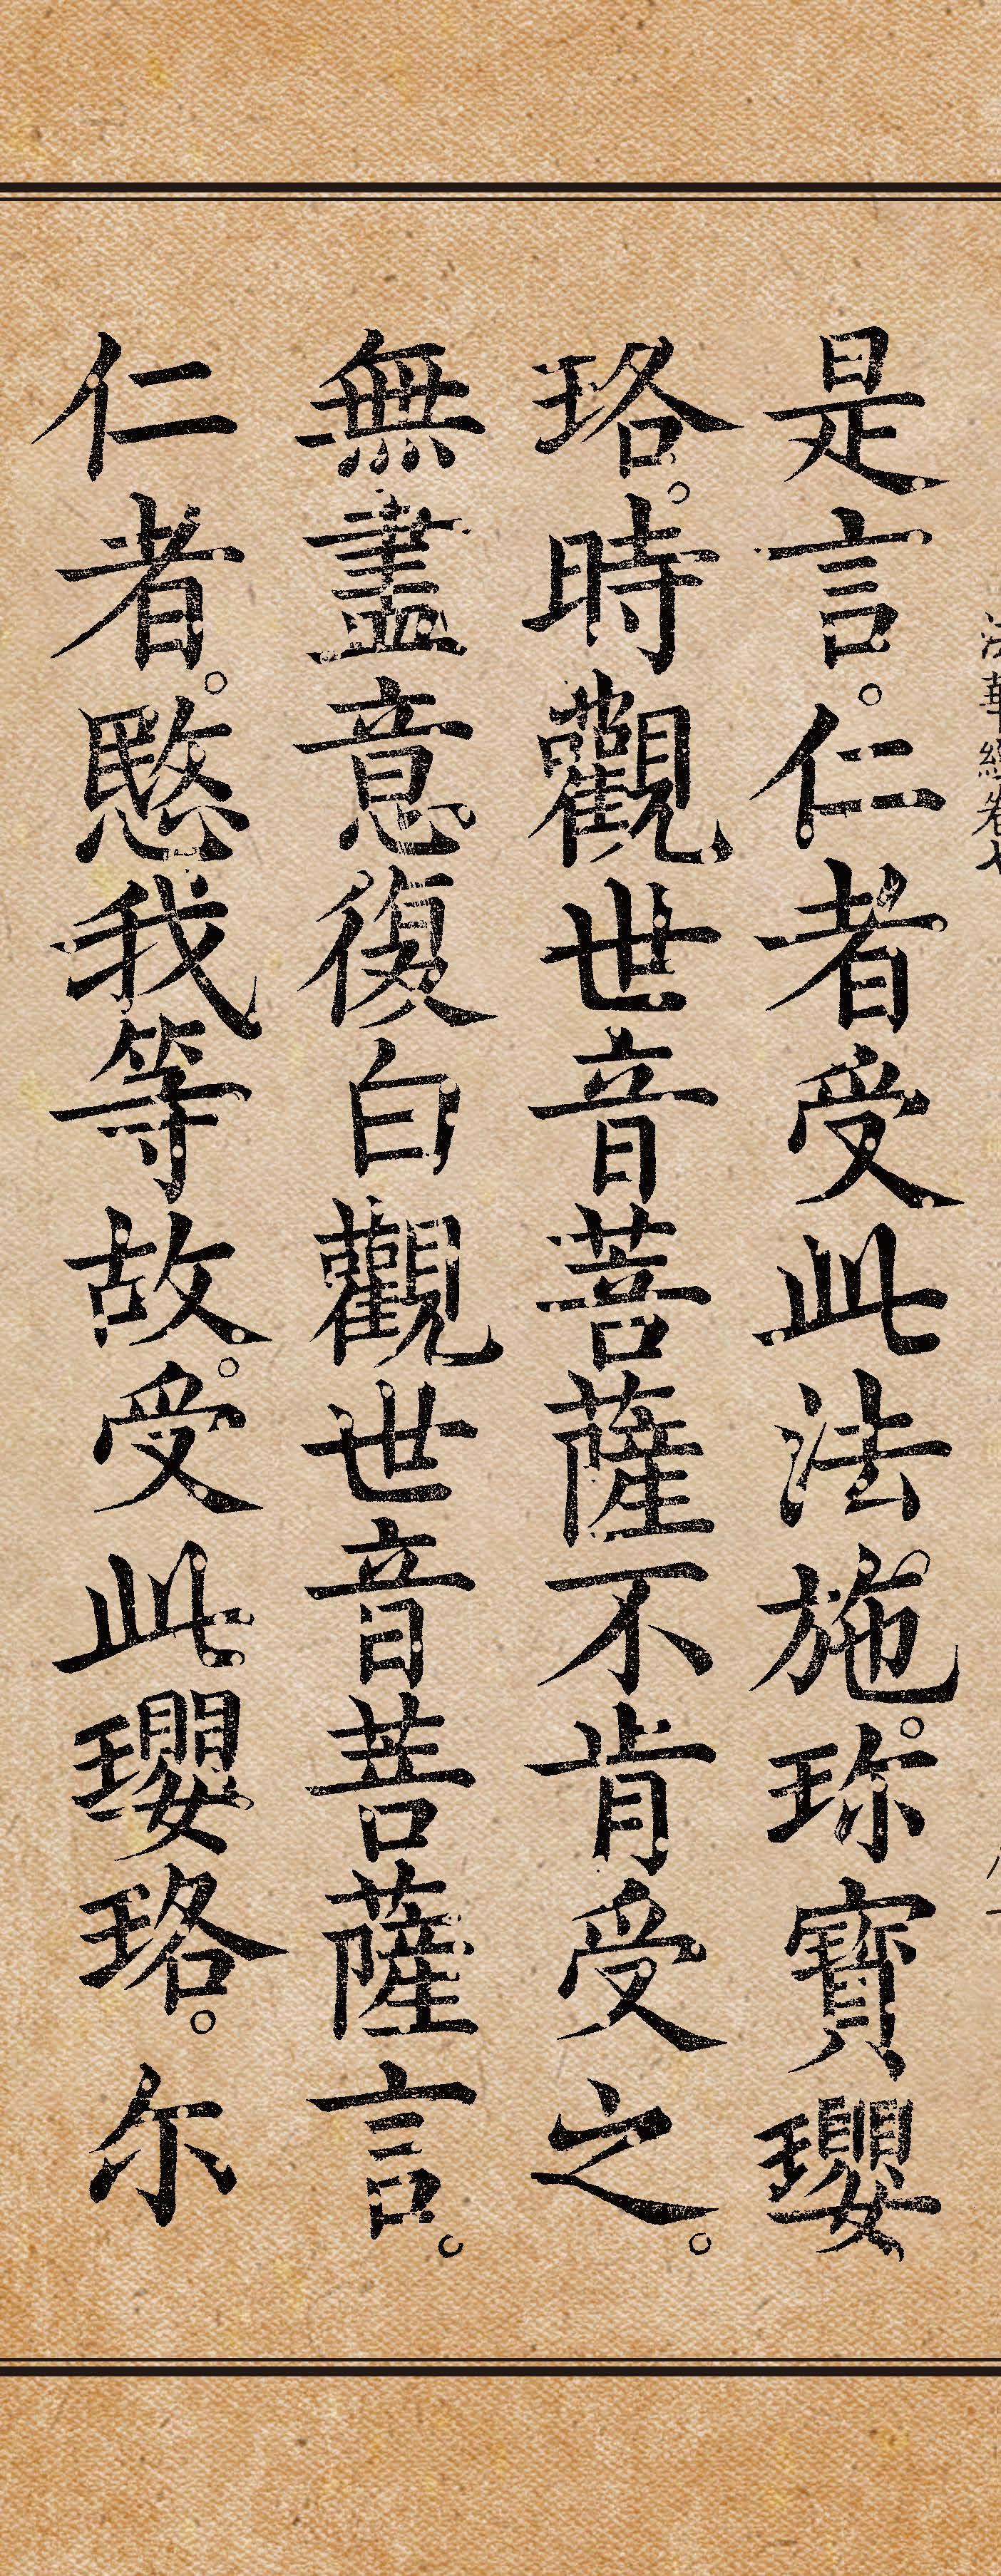 是言。仁者受此法施。珎寶瓔
珞。時觀世音菩薩不肯受之。
無盡意復白觀世音菩薩言。
仁者。愍我等故。受此瓔珞。尔